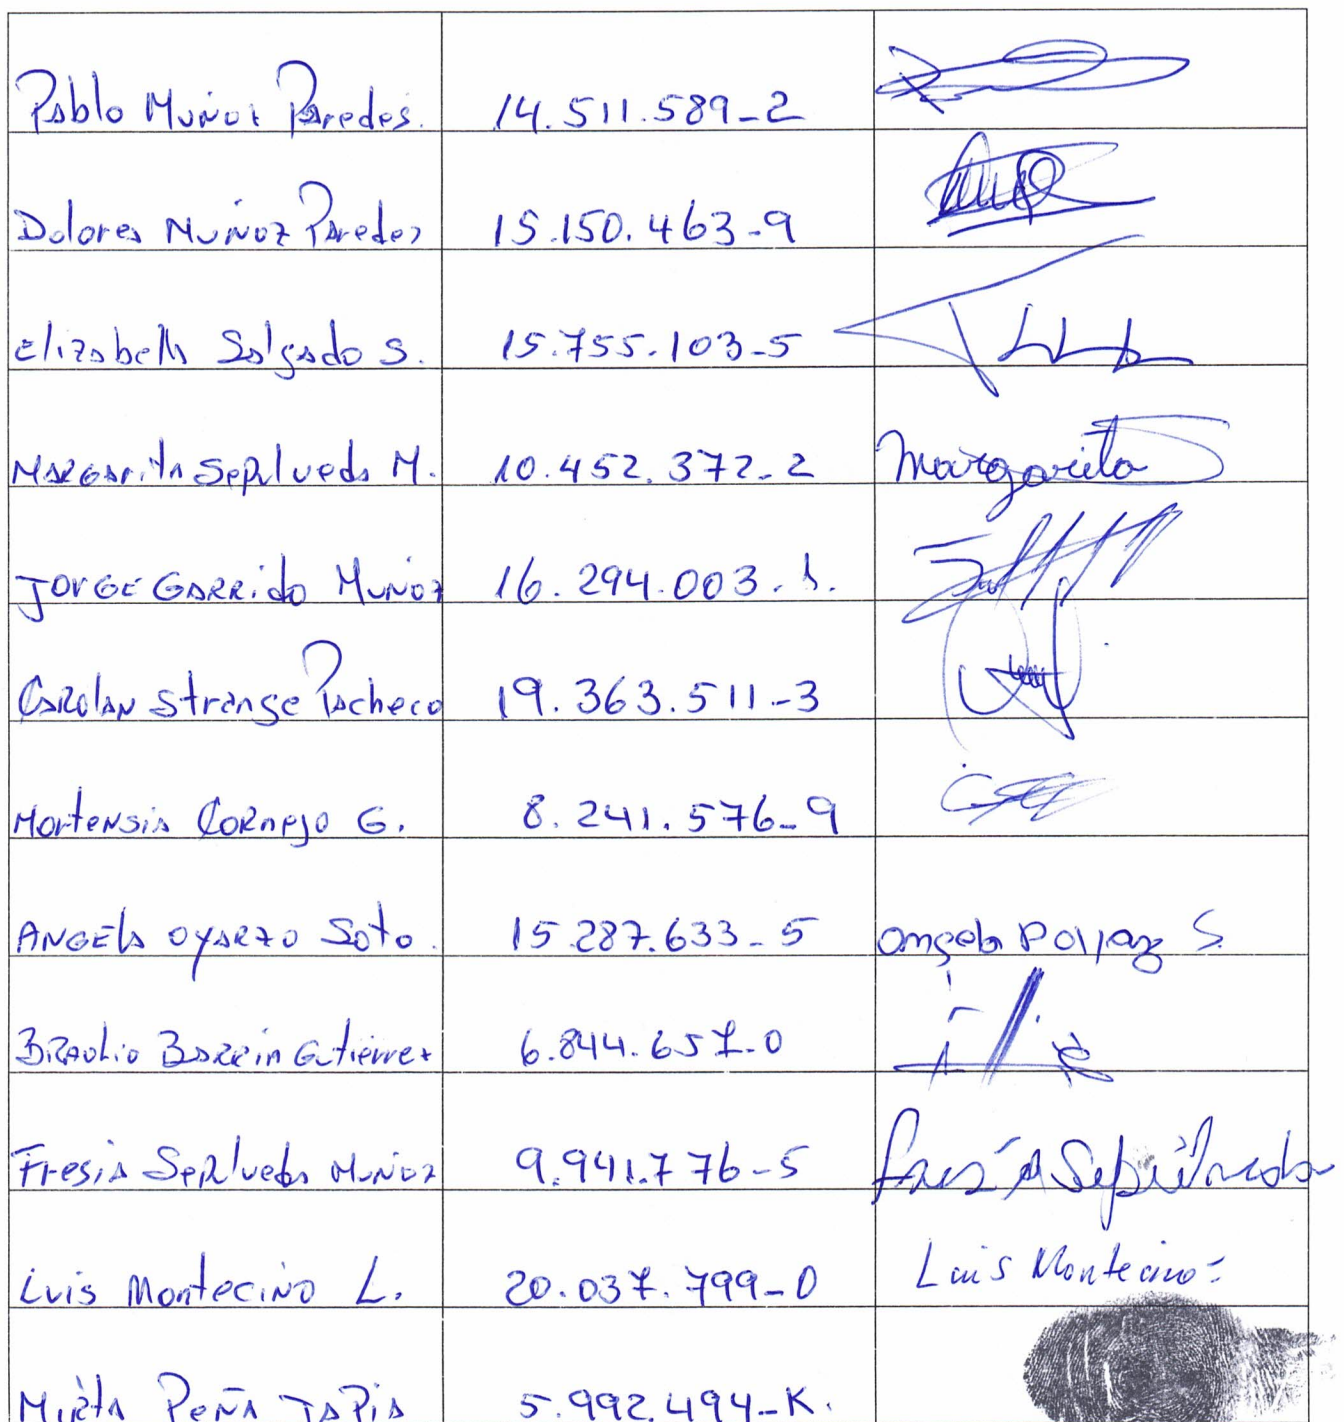 Pablo Muñoz Paredes. 14.511.589-2
Dolores Muñoz Paredes 15.150.463-9
Elizabeth Salgado S. 15.755.103-5
Margarita Sepulveda M. 10.452.372-2 Margarita
Jorge Garrido Muñoz 16.294.003.1.
Carolan Strange Pacheco 19.363.511-3
Hortensia Cornejo G. 8.241.576-9
Angela Oyarzo Soto. 15.287.633-5 Angela S.
Braulio Barria Gutierrez 6.844.657-0
Fresia Sepulveda Muñoz 9.941.776-5 Fresia Sepulveda
Luis Montecino L. 20.037.799-0 Luis Montecino
Mirta Peña Tapia 5.992.494-K.